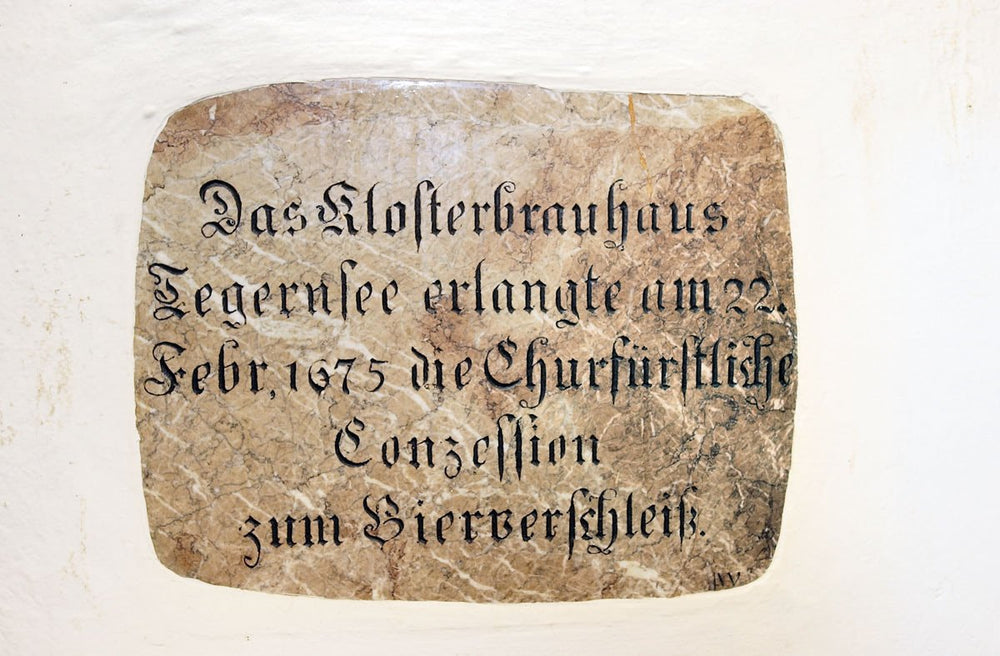 Das Klosterbrauhaus
Tegernsee erlangte am 22.
Febr, 1675 die Churfürstliche
Conzession
zum Bierverschleiß.
JW